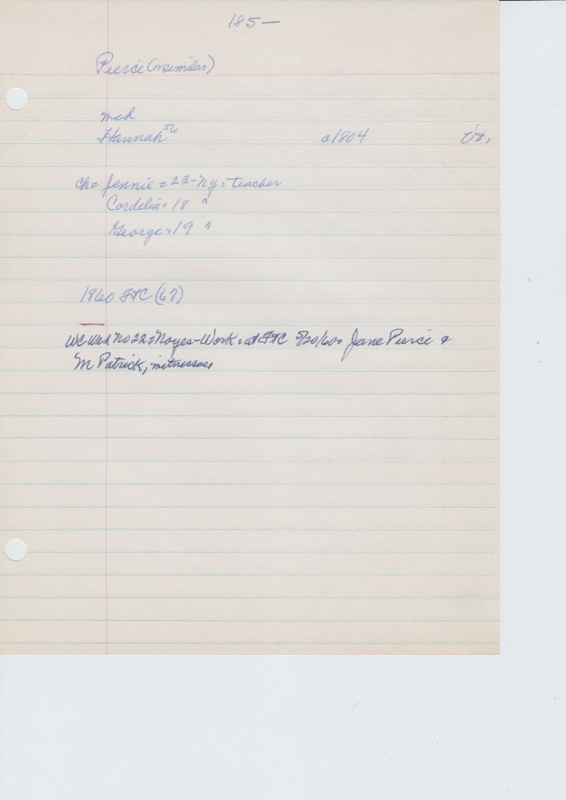 185—
Pierce
med
Hannah 56 c1804 Vt.
Ch= Jennie = 22-Ny = teacher
Cordelia = 18 "
George = 19 "
1860 FTC (67)
WC Wed No 22 = Noyes-Work = at FTC 5/20/60 = Jane Pierce &
M Patrick, witnesses